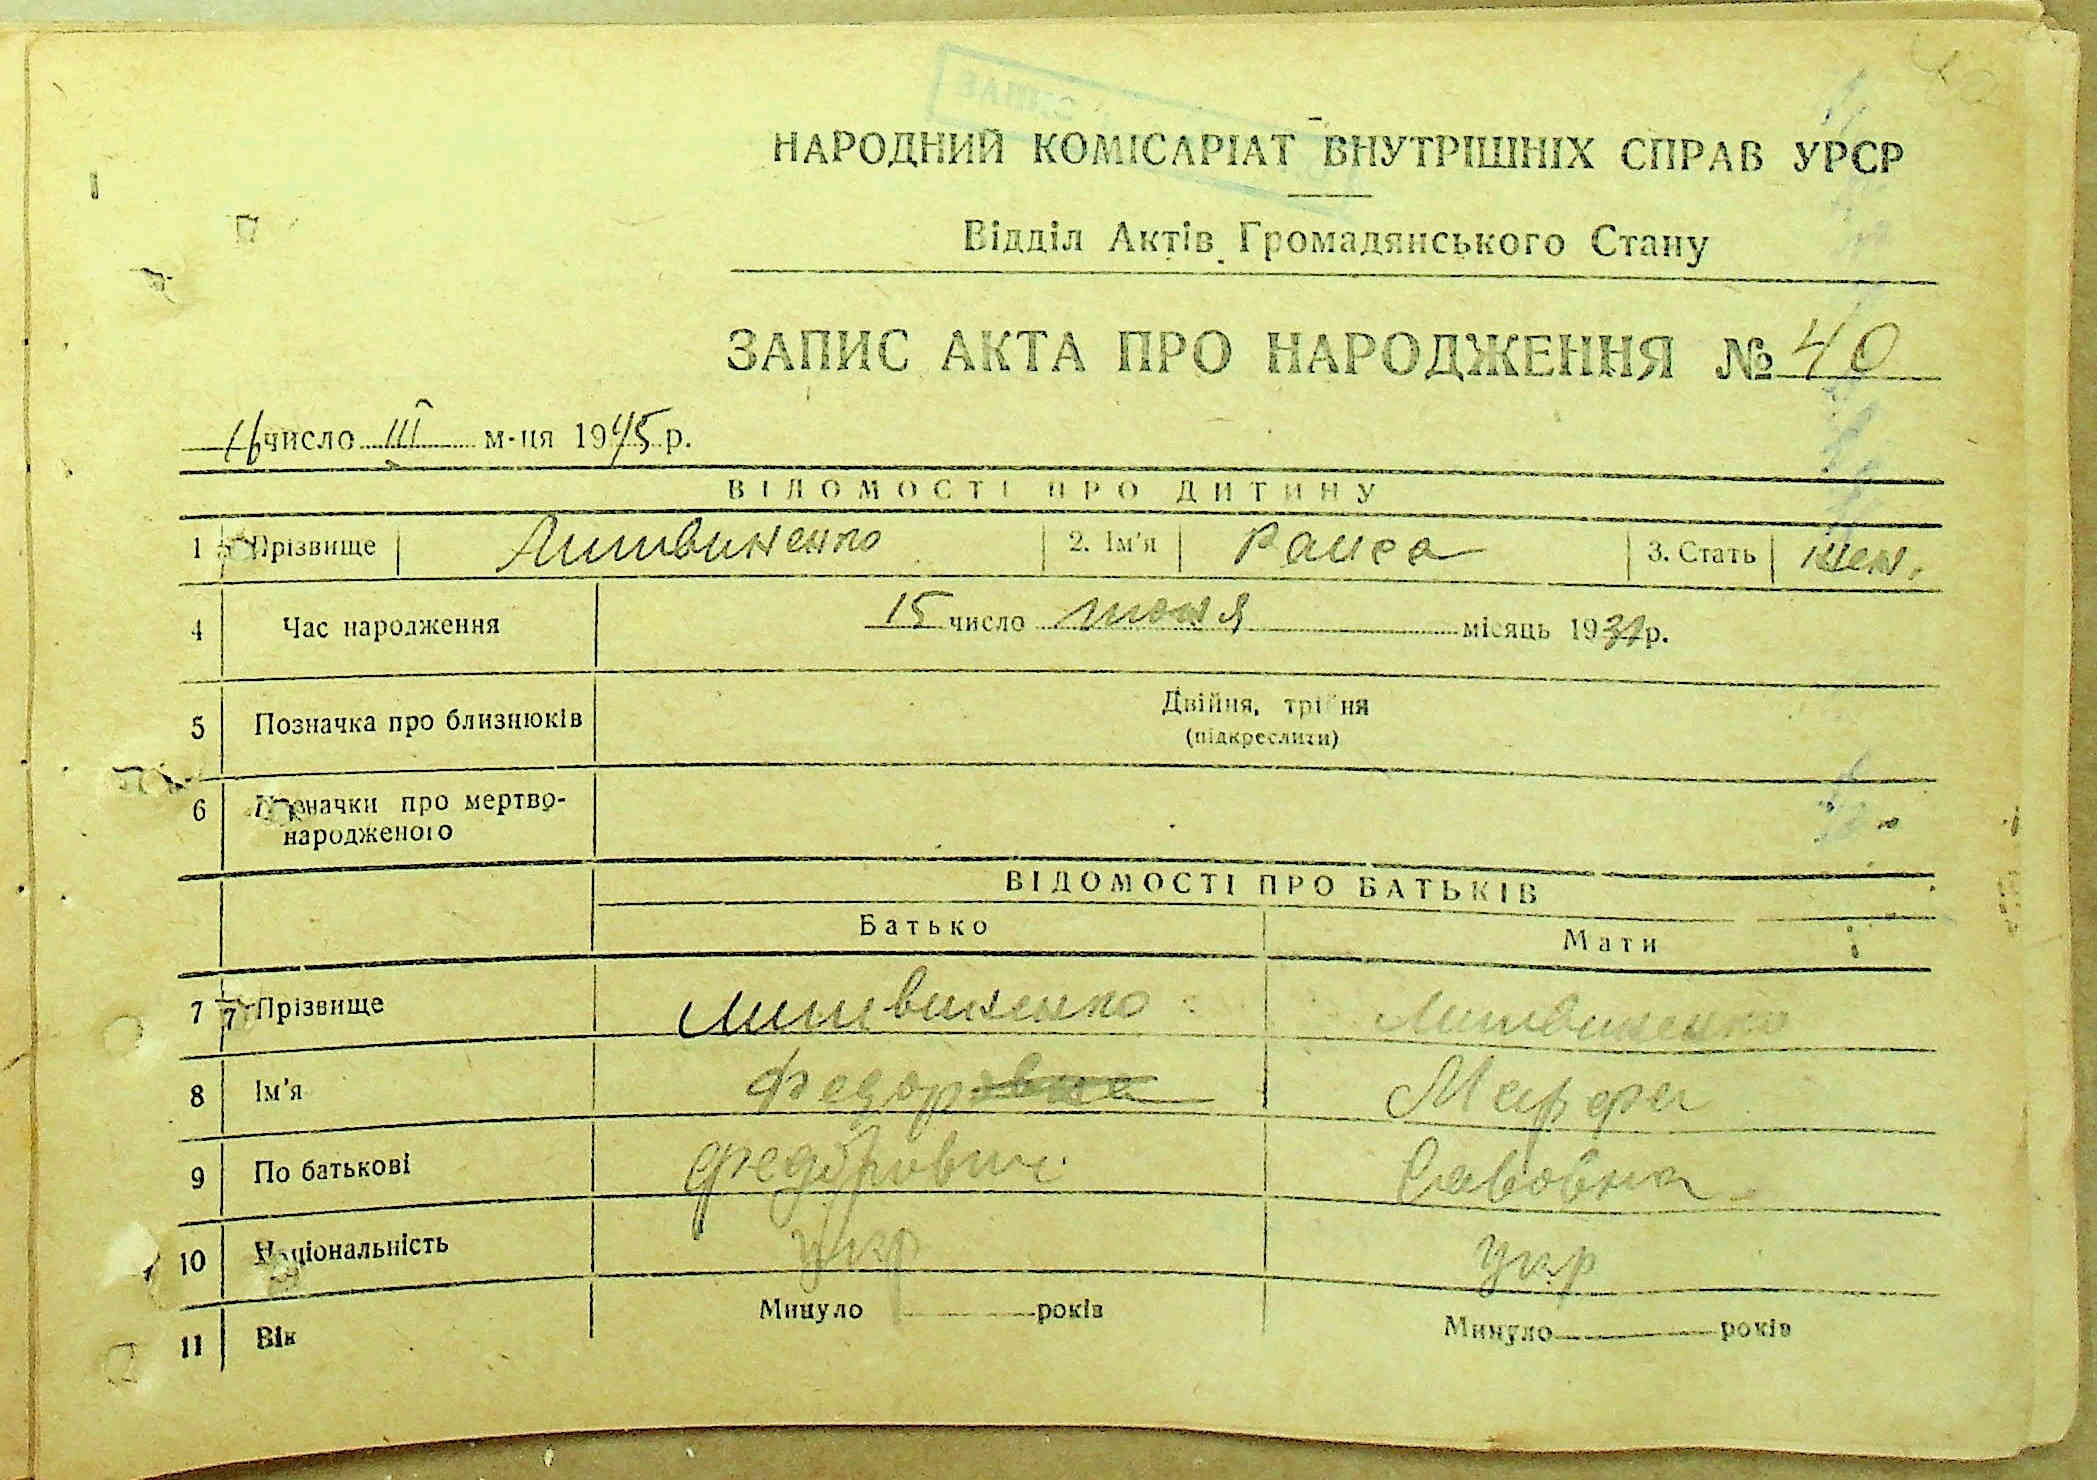 НАРОДНИЙ КОМІСАРІАТ ВНУТРІШНІХ СПРАВ УРСР
Відділ Актів Громадянського Стану
ЗАПИС АКТА ПРО НАРОДЖЕННЯ № 40
16 число III м-ця 1945 р.
ВІДОМОСТІ ПРО ДИТИНУ
1 Прізвище Литвиненко 2. Ім'я Раиса 3. Стать жен.
4 Час народження 15 число июня місяць 1931 р.
5 Позначка про близнюків Двійня, трійня
(підкреслити)
6 Позначки про мертво-
народженого
ВІДОМОСТІ ПРО БАТЬКІВ
Батько Мати
7 Прізвище Литвиненко Литвиненко
8 Ім'я Федор Марфа
9 По батькові Федорович Савовна
10 Національність укр укр
11 Вік Минуло років Минуло років